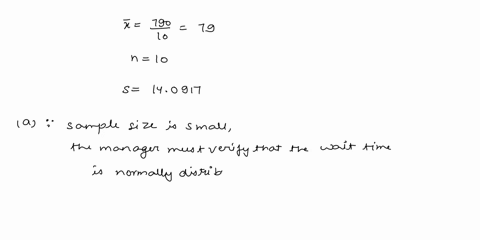 x̄ = 790/10 = 79
n = 10
s = 14.0917
(a) ∵ sample size is small,
the manager must verify that the wait time
is normally distrib